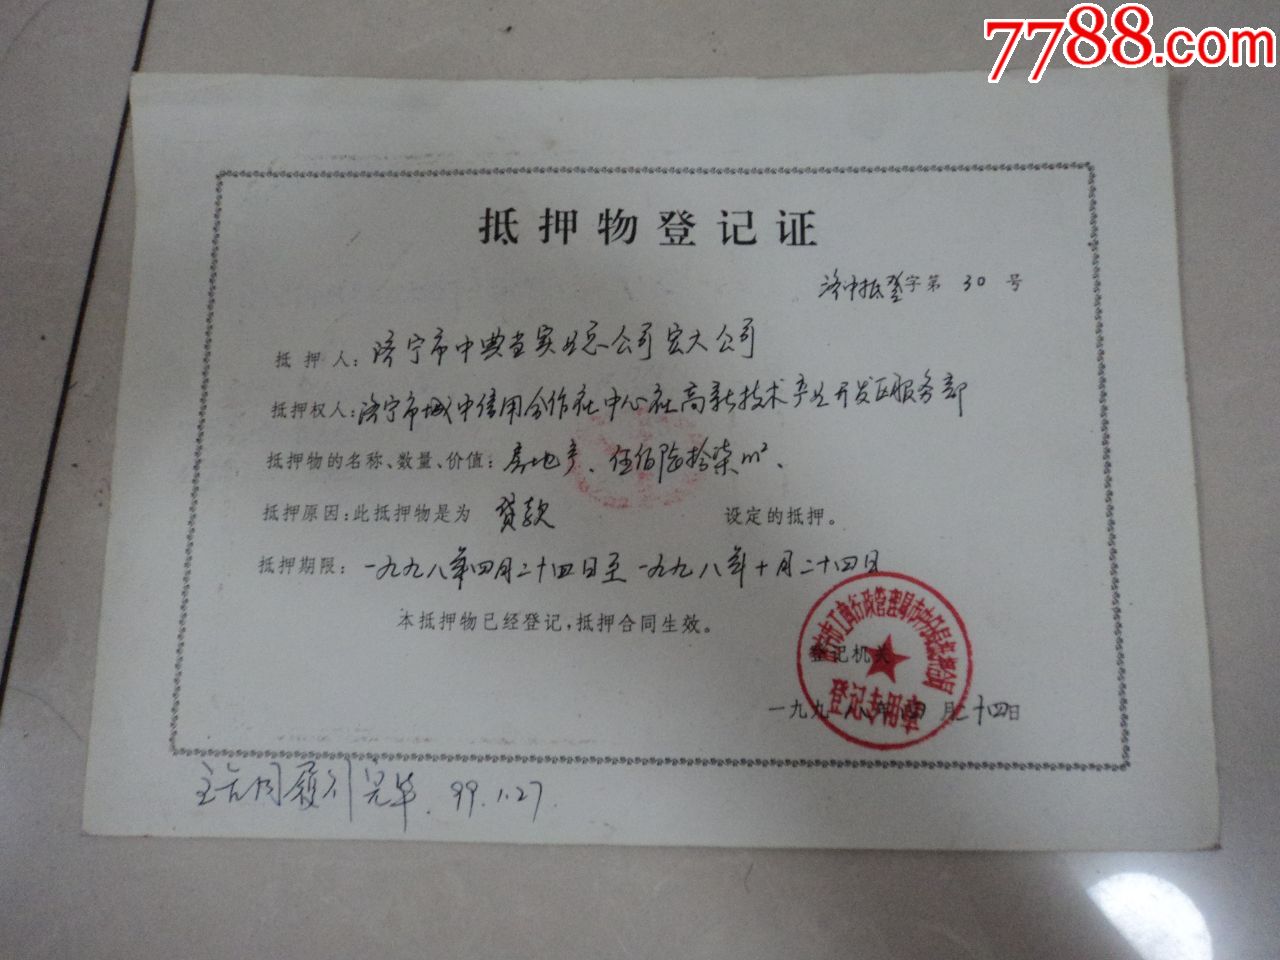 7788.com
抵押物登记证
济中抵登字第 30 号
抵押人：济宁市中典当实业总公司宏大公司
抵押权人：济宁市城中信用合作社中心社高新技术产业开发区服务部
抵押物的名称、数量、价值：房地产、伍佰陆拾柒m²、
抵押原因：此抵押物是为 贷款 设定的抵押。
抵押期限：一九九八年四月二十四日至一九九八年十月二十四日
本抵押物已经登记，抵押合同生效。
登记机关
登记专用章
一九九八年四月二十四日
主合同履行完毕. 99.1.27.